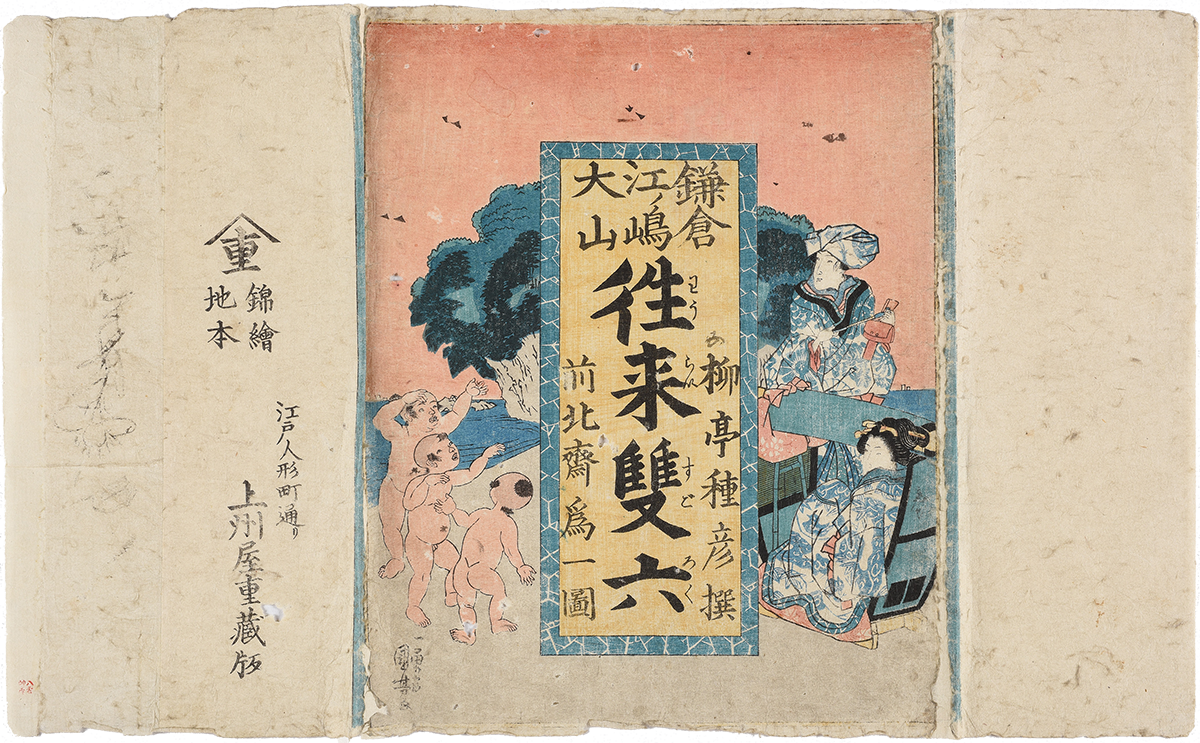 鎌倉
江ノ嶋
大山
往来雙六
わうらいすごろく
柳亭種彦撰
前北齋爲一圖
一勇齋
國芳画
重
錦繪
地本
江戸人形町通り
上州屋重藏版